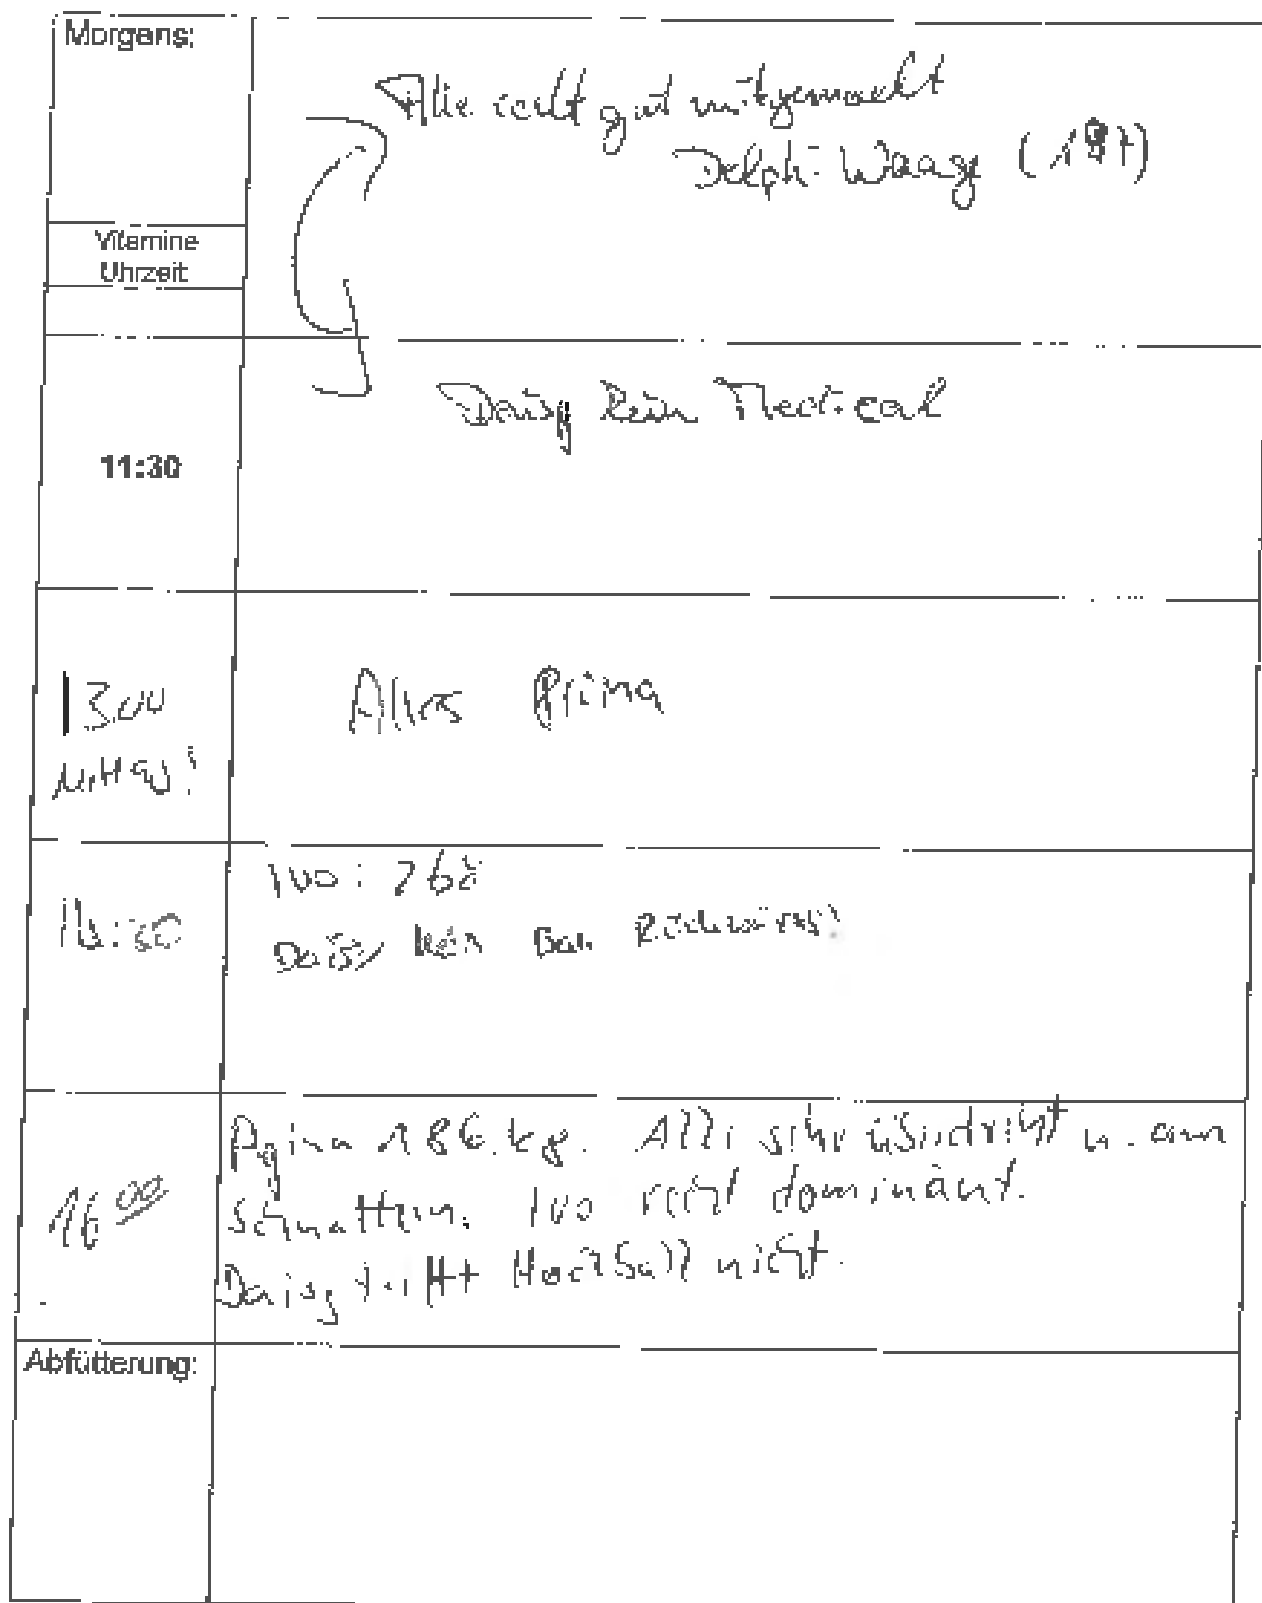 Morgens:
Alle recht gut mitgemacht
Delphi Waage (197)
Vitamine
Uhrzeit
11:30
Daisy kein Medical
13.00
Mittag:
Alles Prima
14:30
Ivo: 268
Daisy kein rückwärts!
16 00
Agina 186 kg. Alle sehr überdreht u. am
schnattern. Ivo recht dominant.
Daisy trifft Hochball nicht.
Abfütterung: